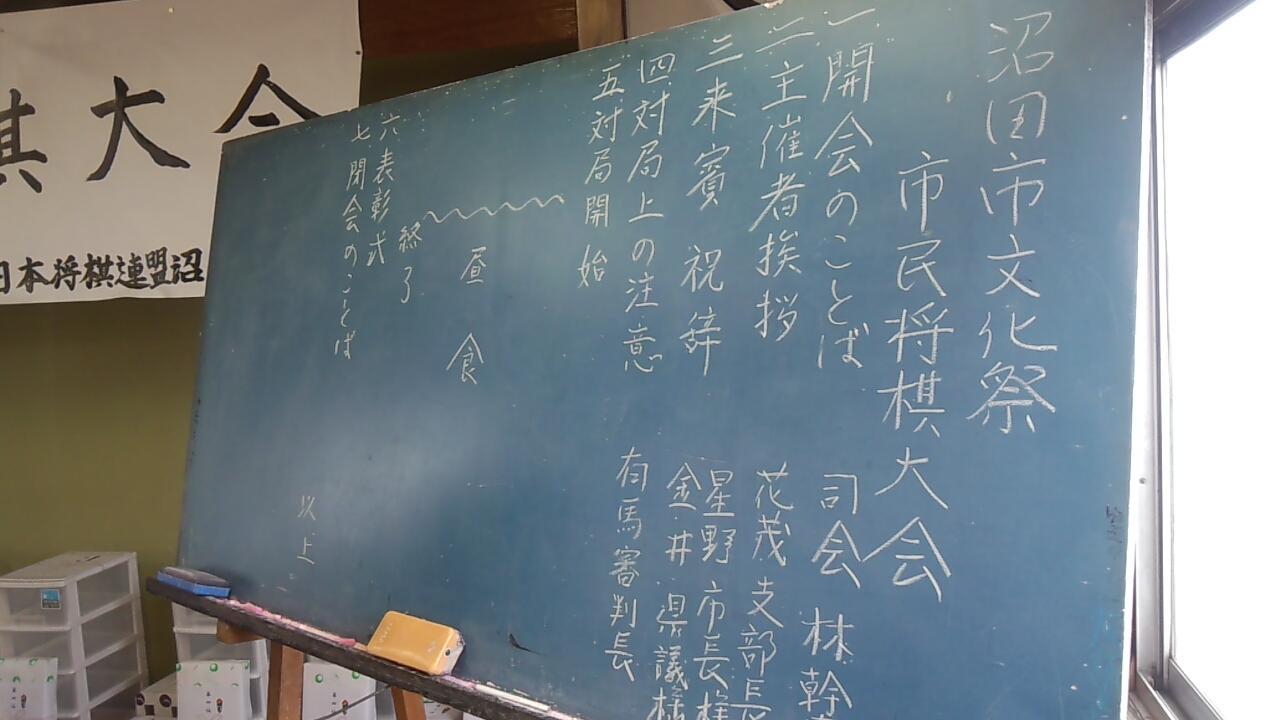 沼田市文化祭
市民将棋大会
一開会のことば 司会 林幹
二主催者挨拶 花茂支部長
三来賓 祝辞 星野市長様
金井県議様
四対局上の注意 有馬審判長
五対局開始
昼食
終了
六表彰式
七閉会のことば
以上
棋大会
日本将棋連盟沼